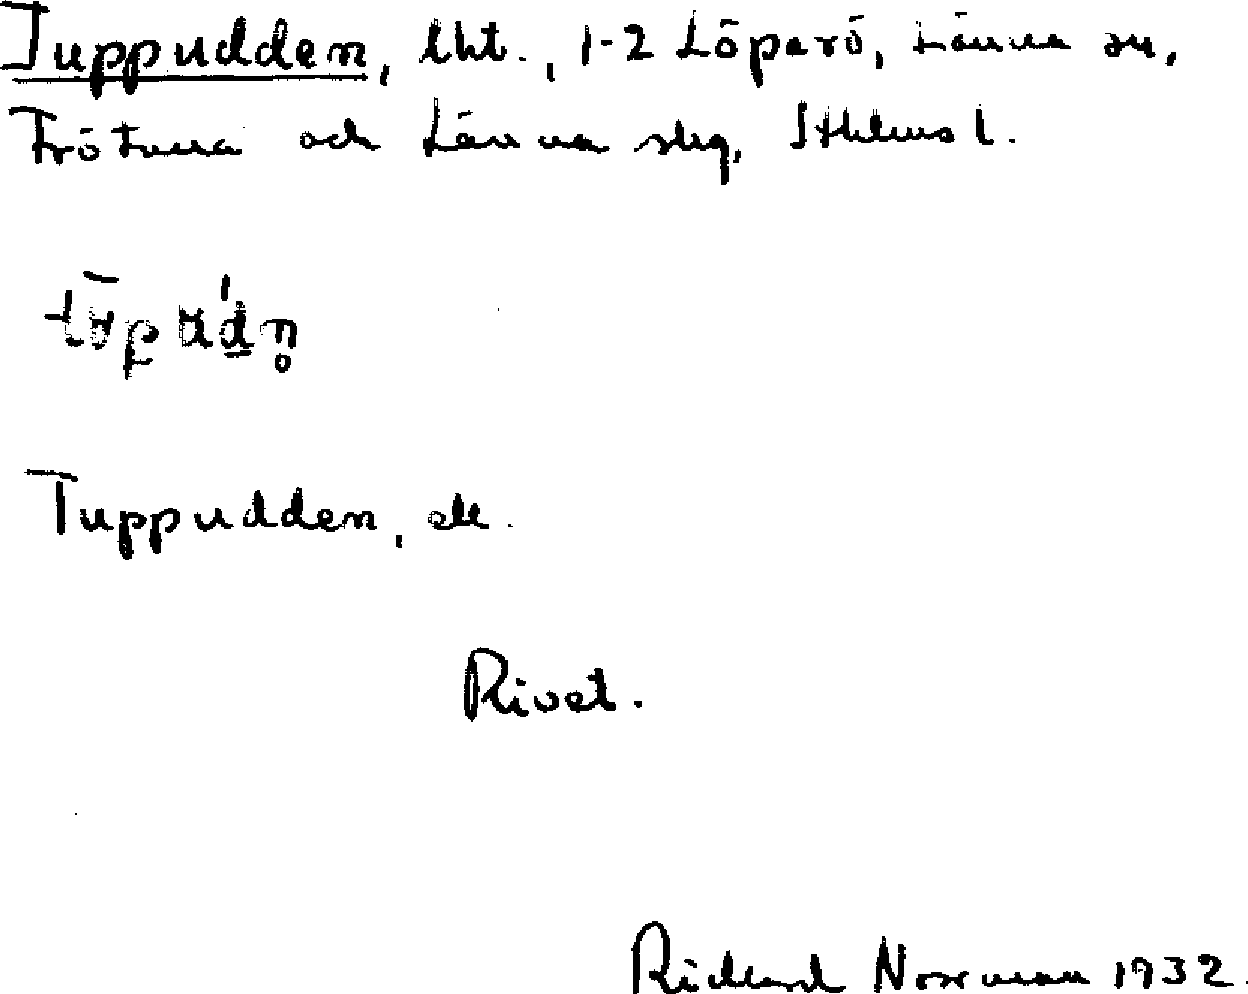 Tuppudden, lht., 1-2 Löparö, Länna sn,
Frötuna och Länna slg, Sthlms l.
Tuppudden, ell.
Rivet.
Richard Norrman 1932.